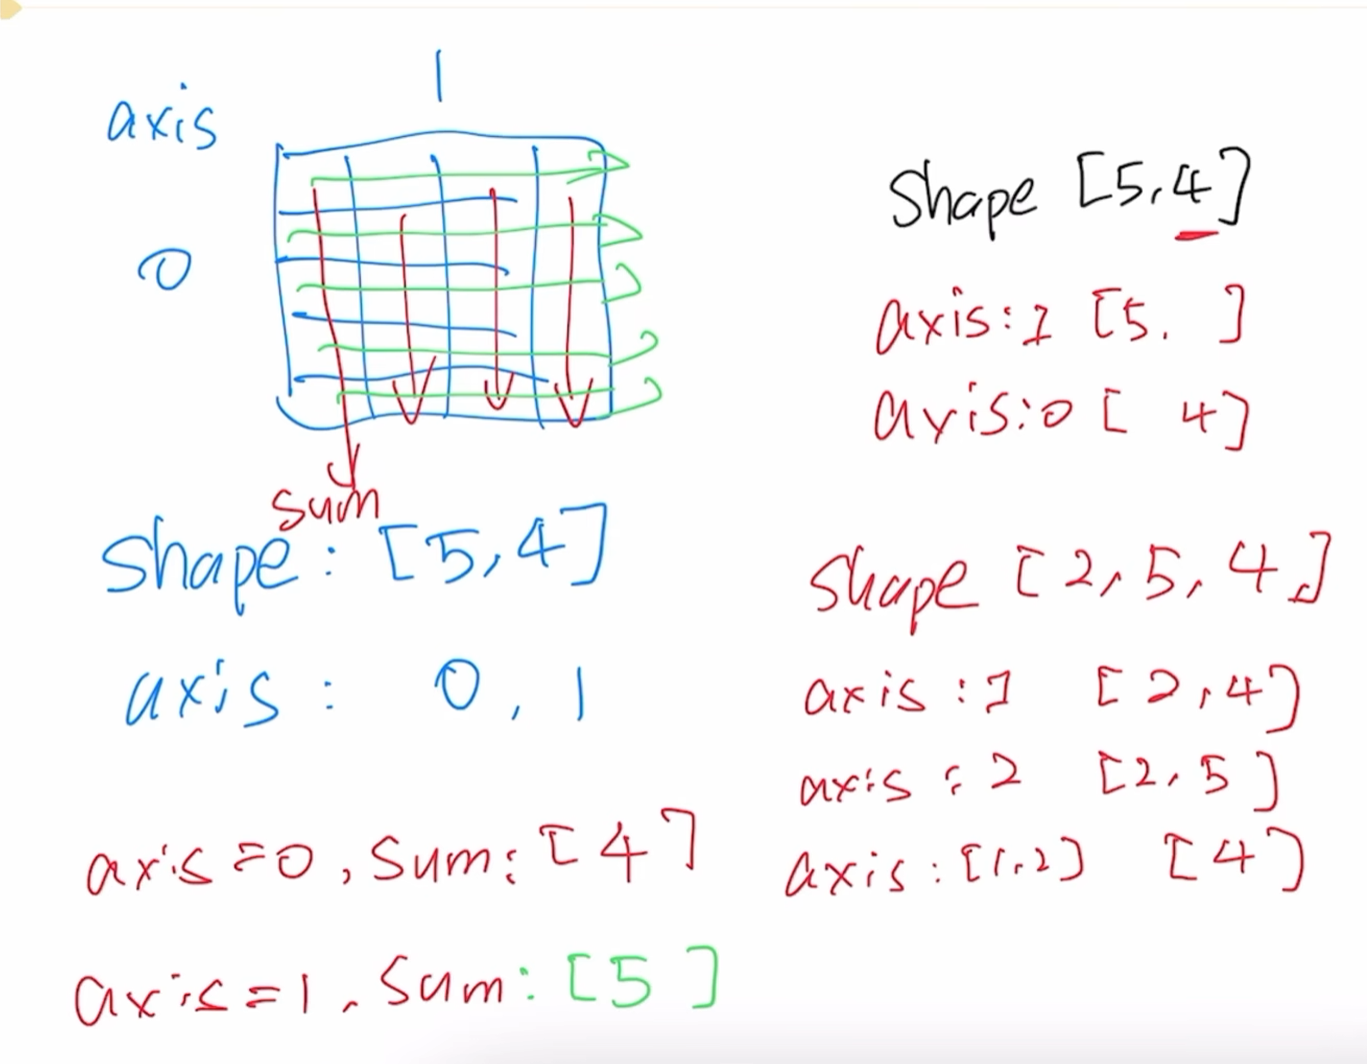 1
axis
0
sum
shape: [5,4]
axis: 0, 1
axis=0, sum: [4]
axis=1, sum: [5 ]
shape [5,4]
axis:1 [5. ]
axis:0 [ 4]
shape [2,5,4]
axis:1 [2,4]
axis:2 [2,5]
axis:[1,2] [4]